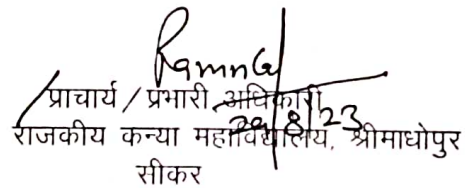 प्राचार्य / प्रभारी अधिकारी
29/8/23
राजकीय कन्या महाविद्यालय, श्रीमाधोपुर
सीकर